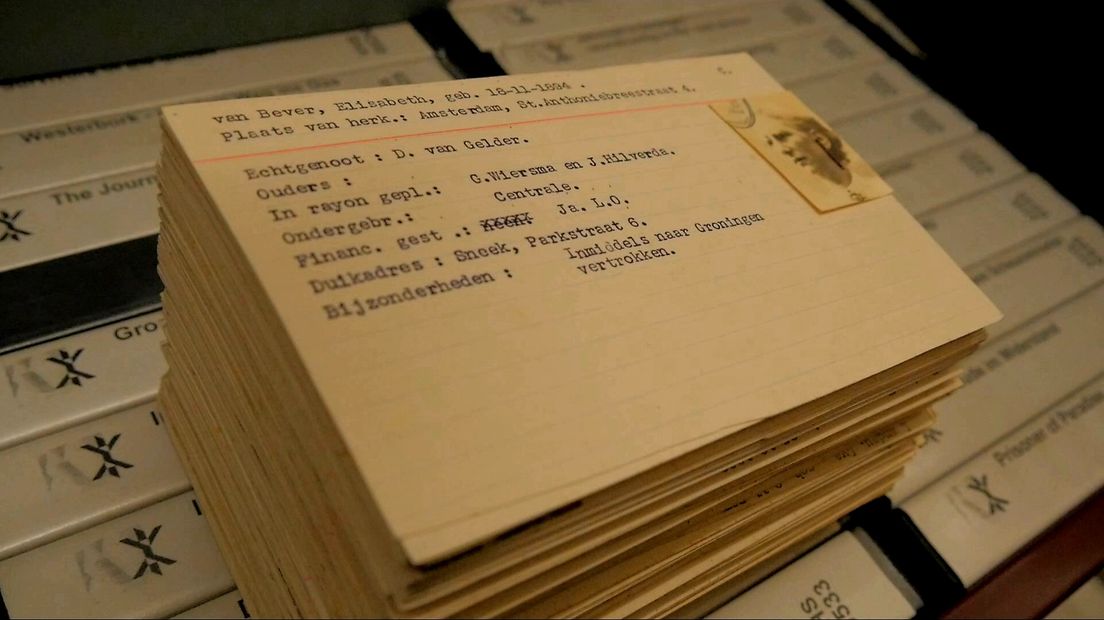 van Bever, Elisabeth, geb. 18-11-1894 .
Plaats van herk.: Amsterdam, St.Anthoniebreestraat 4.
Echtgenoot : D. van Gelder.
Ouders :
In rayon gepl.: G.Wiersma en J.Hilverda.
Ondergebr.: Centrale.
Financ. gest .: Ja. L.O.
Duikadres : Sneek, Parkstraat 6.
Bijzonderheden : Inmiddels naar Groningen
vertrokken.
Westerbork
The Journ
Gro
Prisoner of Paradise
533